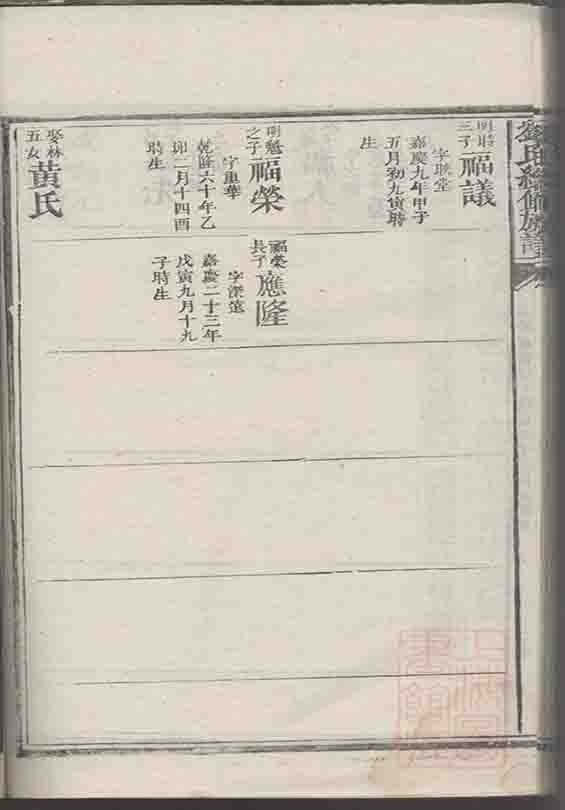 劉氏修族譜
明
三子
福議
字聯堂
嘉慶九年甲子
五月初九寅時
生
明魁
之子
福榮
字重華
乾隆六十年乙
卯二月十四酉
時生
娶林
五女
黃氏
福榮
長子
應隆
字深遠
嘉慶二十三年
戊寅九月十九
子時生
上海圖
書館藏